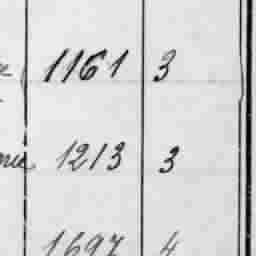 1161 3
1213 3
1697 4